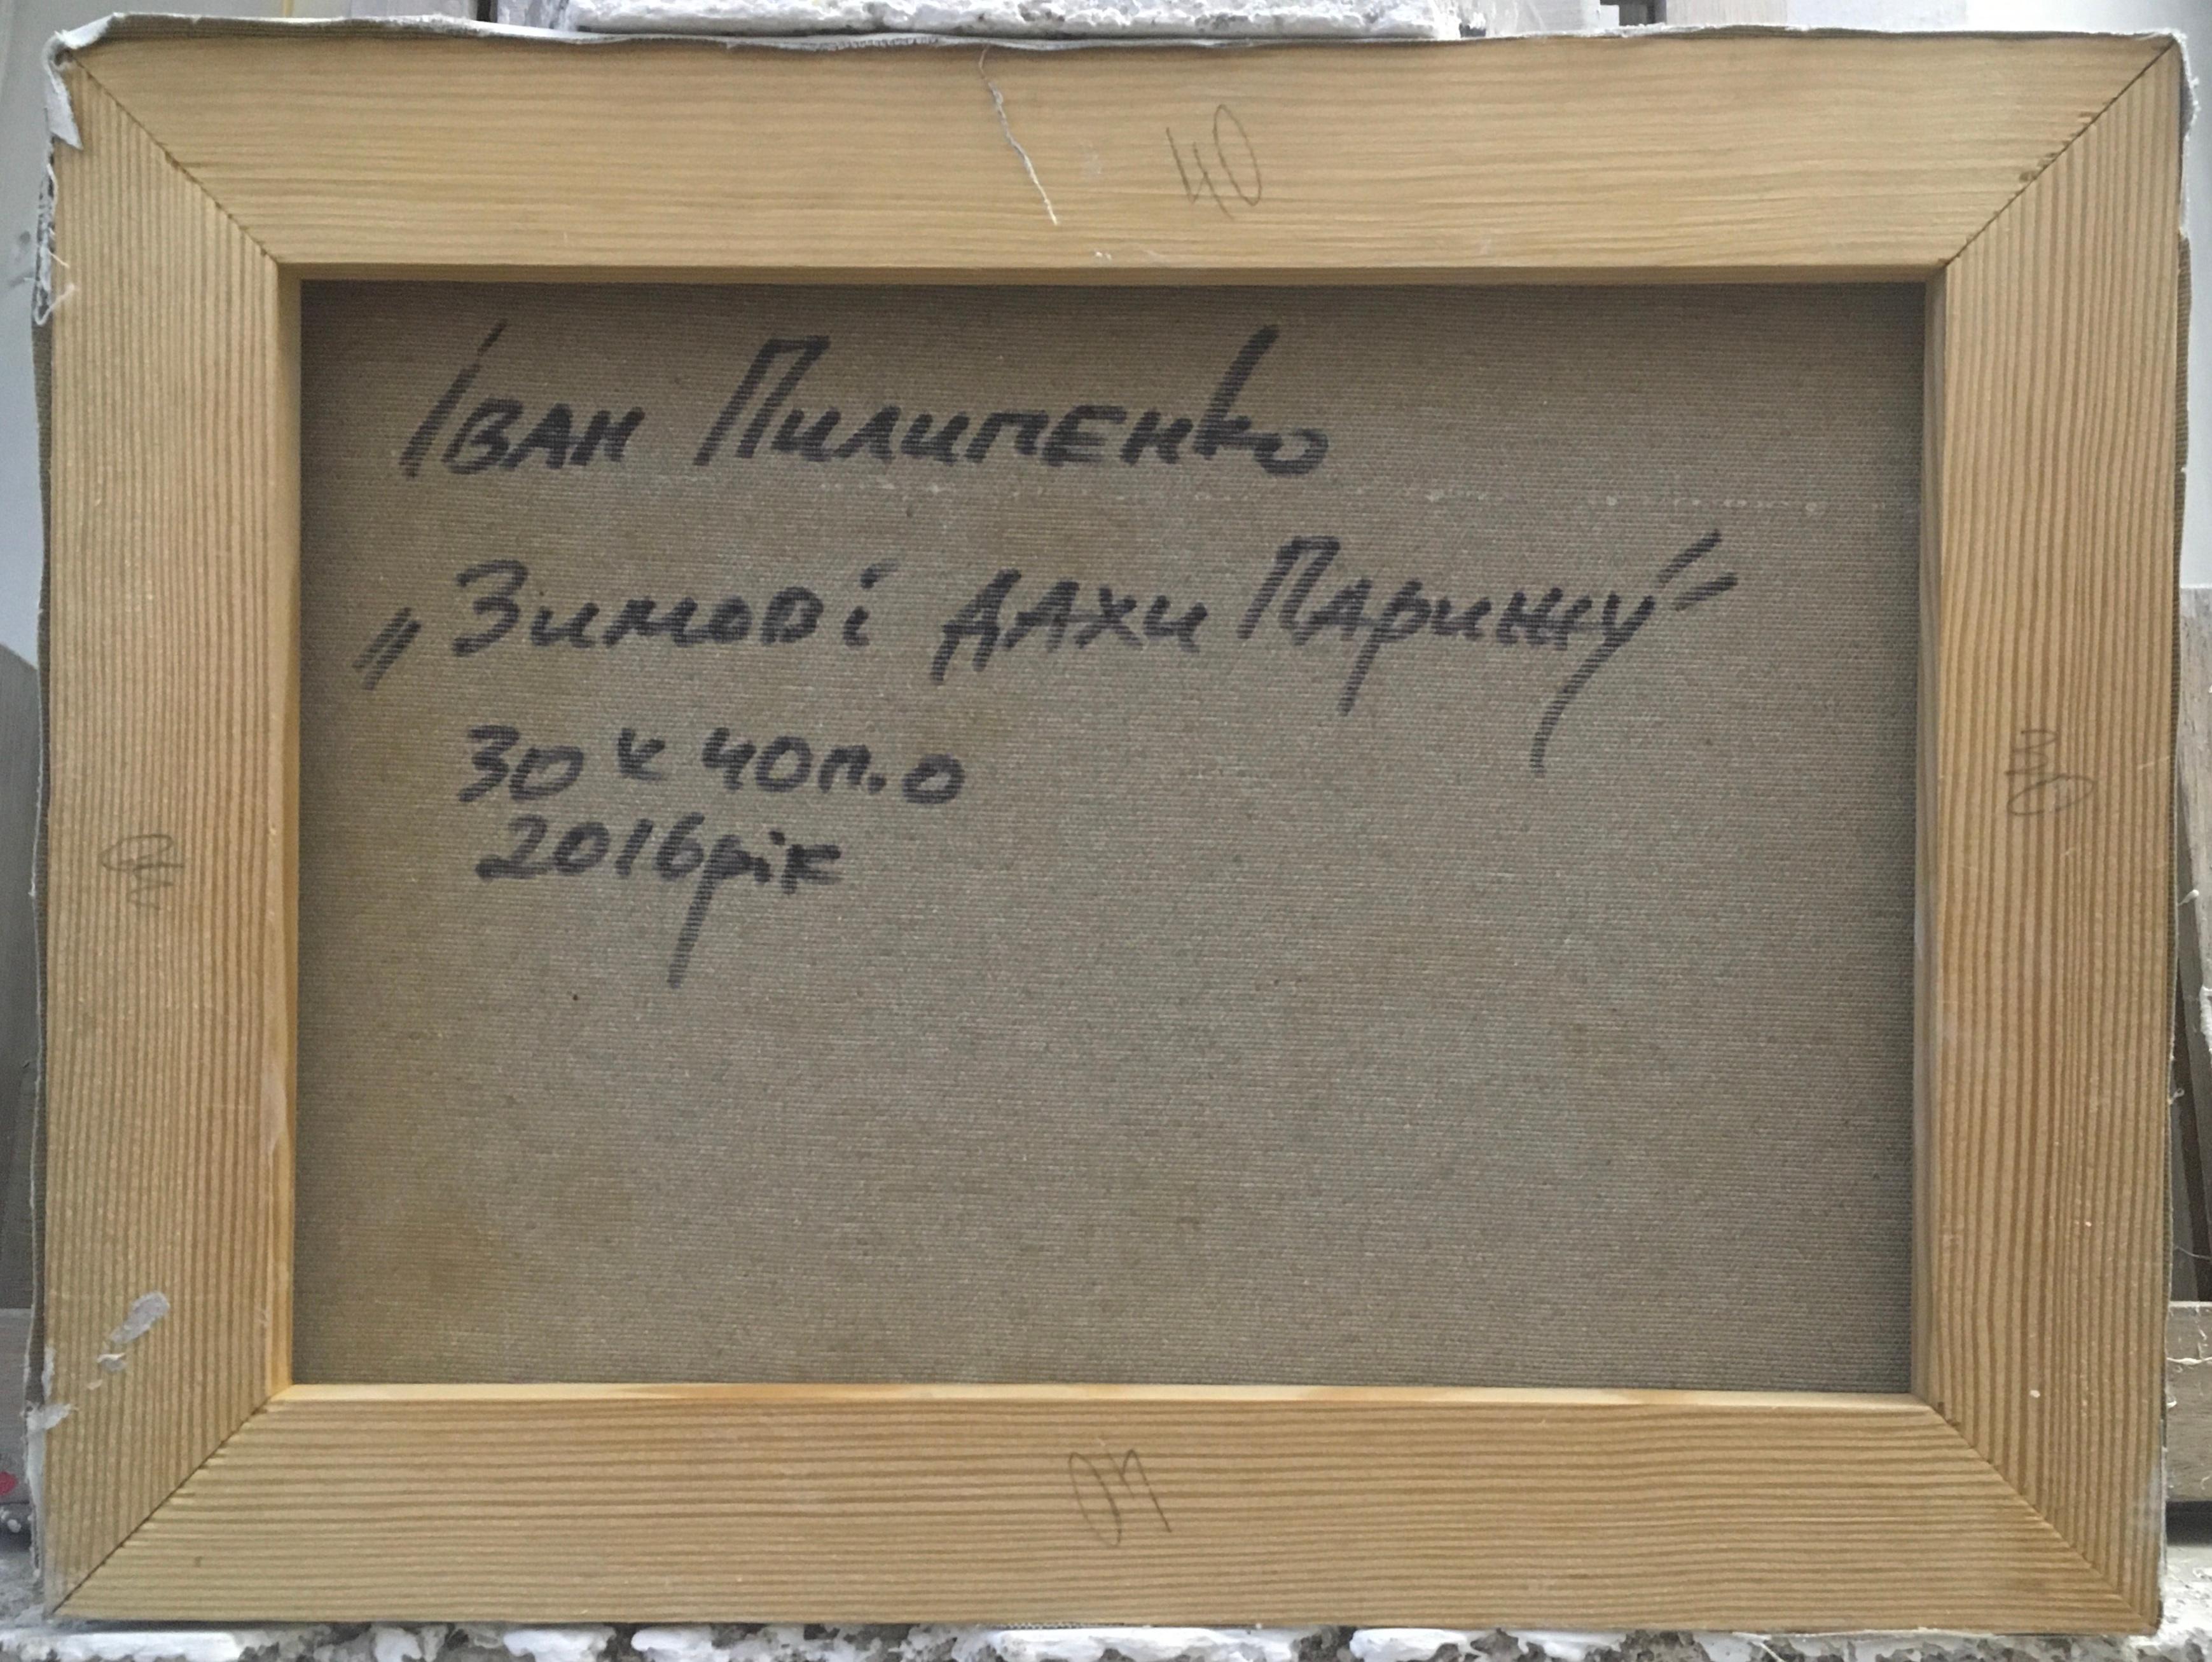 40
Іван Пилипенко
„Зимові дахи Парижу"
30 х 40 п.о
2016 рік
30
30
40